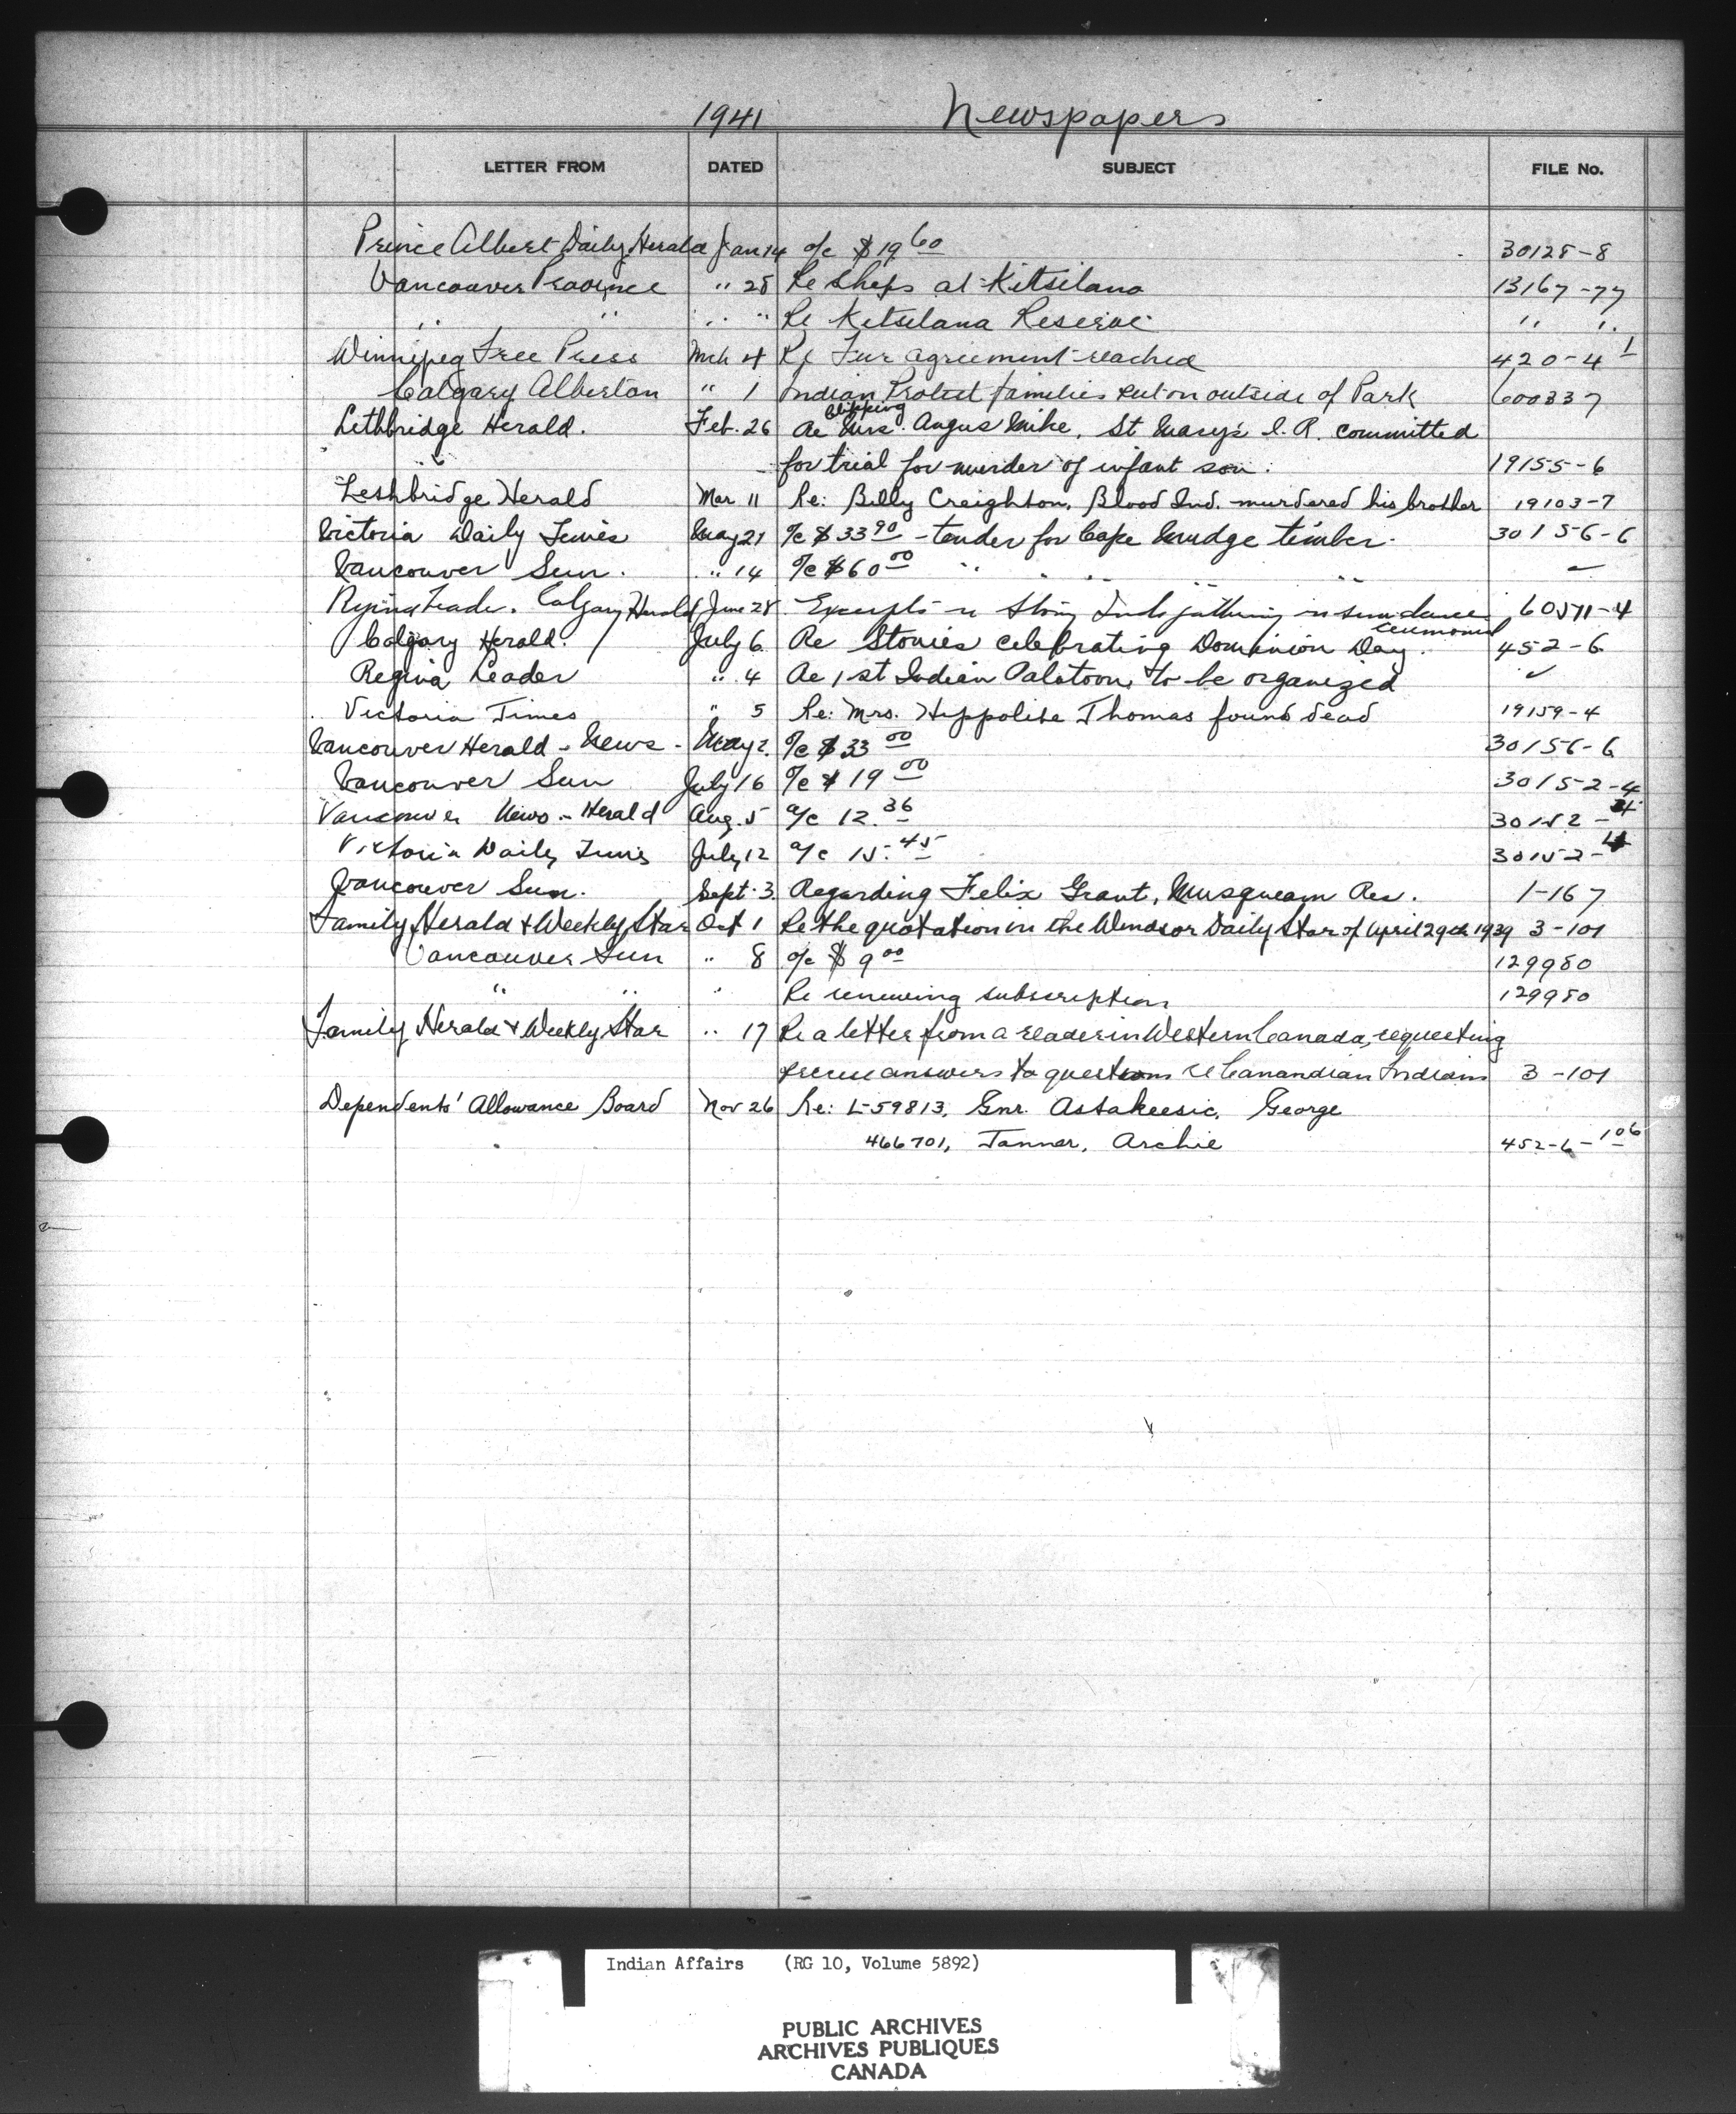 1941 Newspapers
LETTER FROM DATED SUBJECT FILE No.
Prince Albert Daily Herald Jan 14 a/c $19 60 30128-8
Vancouver Province " 28 Re Ships at Kitsilano 13167-77
" " " " Re Kitsilana Reserve " "
Winnipeg Free Press Mch 4 Re Fur agreement reached 420-4 1
Calgary Albertan " 1 Indian Protest families put on outside of Park 600337
Clipping
Lethbridge Herald. Feb. 26 Re Mrs. Angus Mike, St Mary's I.R. committed
" for trial for murder of infant son. 19155-6
Leshbridge Herald Mar 11 Re: Billy Creighton, Blood Ind. murdered his brother 19103-7
Victoria Daily Times May 21 a/c $33 90 - tender for Cape Mudge timber. 30156-6
Vancouver Sun. " 14 a/c $60 00 " " " " "
Leader. Calgary Herald June 28 Excerpts re Stony Inds gathering sundance 60511-4
ceremonial
Calgary Herald. July 6 Re Stonies celebrating Dominion Day. 452-6
Regina Leader " 4 Re 1st Indian Palatoon, to be organized ✓
Victoria Times " 5 Re: Mrs. Hippolite Thomas found dead 19159-4
Vancouver Herald - News - May 2. a/c $33 00 30156-6
Vancouver Sun July 16 a/c $19 00 30152-4
Vancouver News-Herald Aug. 5 a/c 12.36 30152-4
Victoria Daily Times July 12 a/c 15.45 30152-4
Vancouver Sun. Sept. 3. Regarding Felix Grant, Musqueam Res. 1-167
Family Herald & Weekly Star Oct 1 Re the quotation in the Windsor Daily Star of April 29th 1939 3-101
Vancouver Sun " 8 a/c $9 00 129980
" " " Re renewing subscription 129980
Family Herald & Weekly Star " 17 Re a letter from a reader in Western Canada, requesting
answers to questions re Canandian Indians 3-101
Dependents' Allowance Board Nov 26 Re: L-59813, Gnr. Astakeesic, George
466701, Tanner, Archie 452-6-106
Indian Affairs (RG 10, Volume 5892)
PUBLIC ARCHIVES
ARCHIVES PUBLIQUES
CANADA